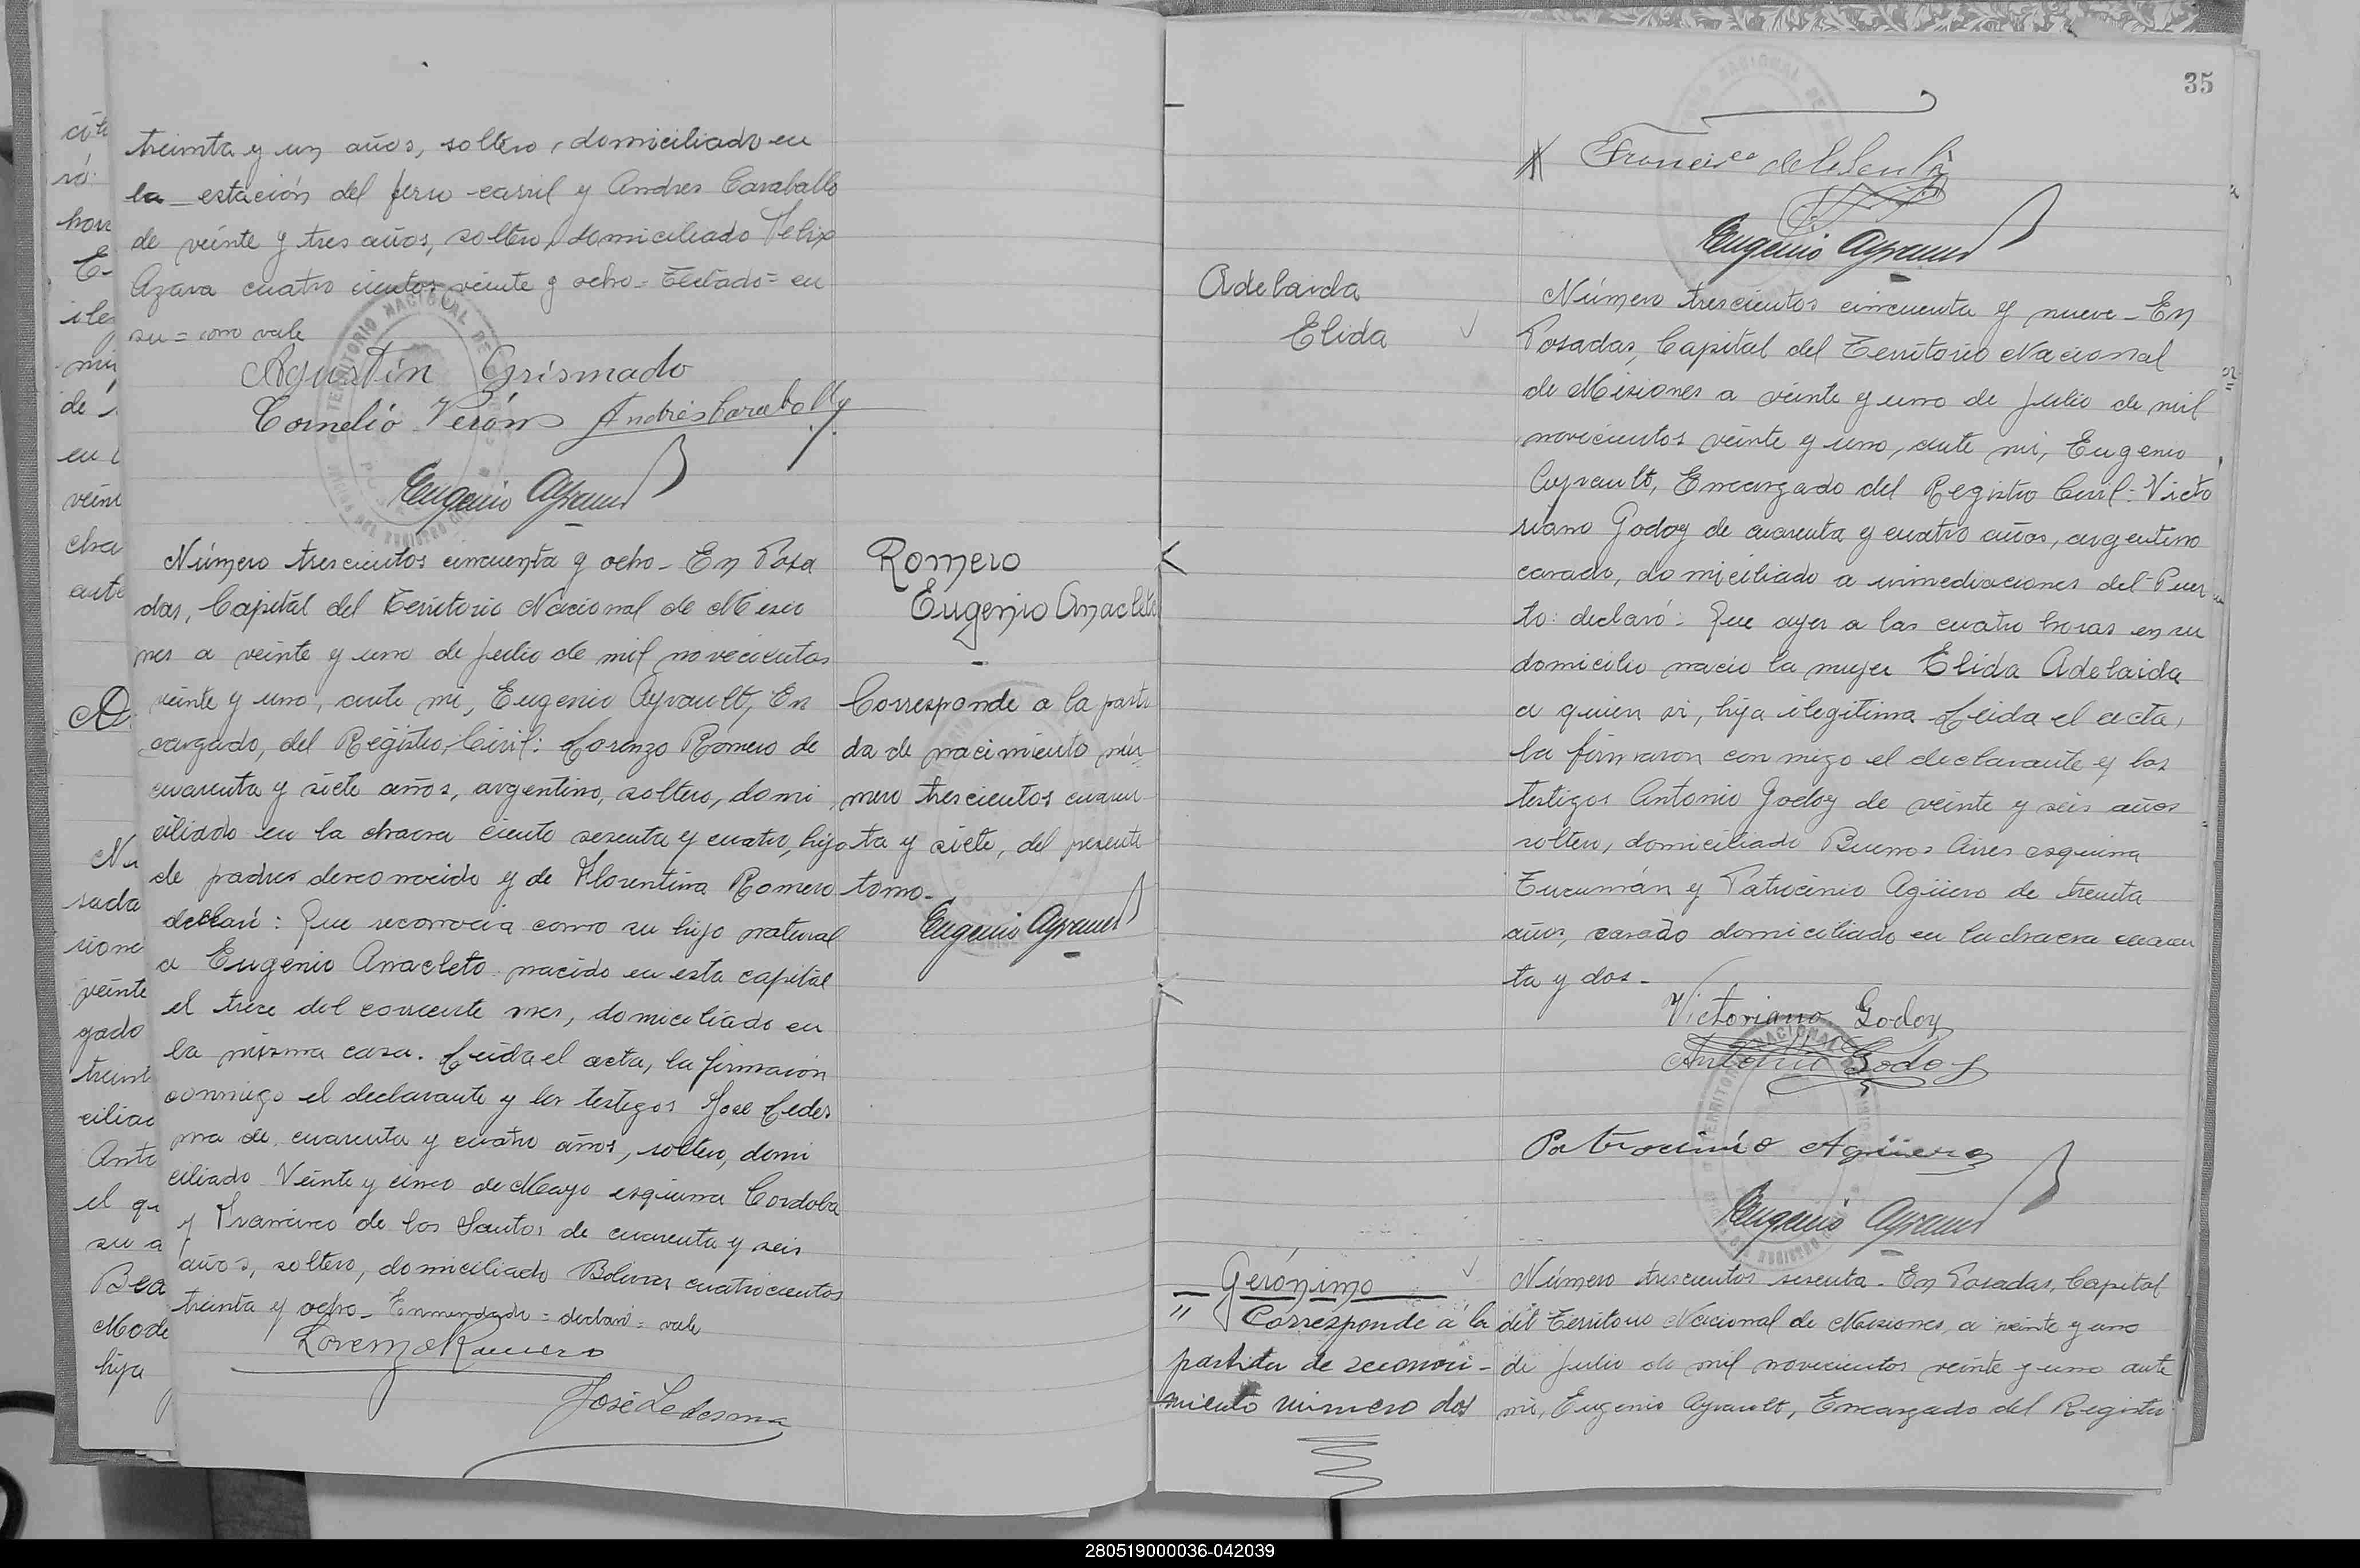 treinta y un años, soltero, domiciliado en
la estación del ferro-carril y Andres Caraballo
de veinte y tres años, soltero, domiciliado Felix
Azara cuatro cientos veinte y ocho - Testado = en
su = no vale
Agustin Grismado
Cornelio Verón Andrés Caraballo
Eugenio Ayrault
Número trescientos cincuenta y ocho - En Posa
das, Capital del Territorio Nacional de Misio
nes a veinte y uno de Julio de mil novecientos
veinte y uno, ante mi, Eugenio Ayrault, En
cargado, del Registro Civil: Lorenzo Romero de
cuarenta y siete años, argentino, soltero, domi
ciliado en la chacra ciento sesenta y cuatro, hijo
de padres desconocido y de Florentina Romero
declaró: Que reconocia como su hijo natural
a Eugenio Anacleto nacido en esta capital
el trece del corriente mes, domiciliado en
la misma casa. Leida el acta, la firmaron
conmigo el declarante y los testigos Jose Ledes
ma de cuarenta y cuatro años, soltero, domi
ciliado Veinte y cinco de Mayo esquina Cordoba
y Francisco de los Santos de cuarenta y seis
años, soltero, domiciliado Bolivar cuatrocientos
treinta y ocho - Enmendado = declaró = vale
Lorenzo Romero
José Ledesma
Romero
Eugenio Anacleto
Corresponde a la parti
da de nacimiento nú-
mero trescientos cuaren-
ta y siete, del presente
tomo-
Eugenio Ayrault
35
Eugenio Ayrault
Adelaida
Elida
Número trescientos cincuenta y nueve - En
Posadas, Capital del Territorio Nacional
de Misiones a veinte y uno de Julio de mil
novecientos veinte y uno, ante mi, Eugenio
Ayrault, Encargado del Registro Civil: Victo
riano Godoy de cuarenta y cuatro años, argentino
casado, domiciliado a inmediaciones del Puer
to: declaró: Que ayer a las cuatro horas en su
domicilio nació la mujer Elida Adelaida
a quien vi, hija ilegitima Leida el acta,
la firmaron conmigo el declarante y los
testigos Antonio Godoy de veinte y seis años
soltero, domiciliado Buenos Aires esquina
Tucumán y Patrocinio Agüero de treinta
años, casado domiciliado en la chacra cuaren
ta y dos -
Victoriano Godoy
Antonio Godoy
Patrocinio Agüero
Eugenio Ayrault
Gerónimo
Corresponde á la
partida de reconoci-
miento número dos
Número trescientos sesenta - En Posadas, Capital
del Territorio Nacional de Misiones, a veinte y uno
de Julio de mil novecientos veinte y uno ante
mi, Eugenio Ayrault, Encargado del Registro
280519000036-042039